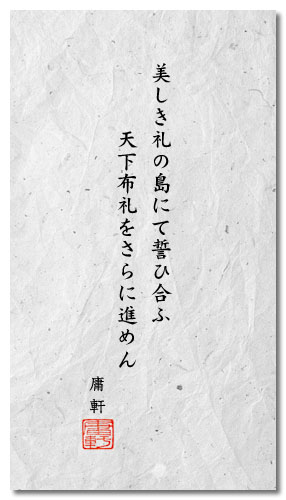 美しき礼の島にて誓ひ合ふ
天下布礼をさらに進めん
庸軒
庸軒